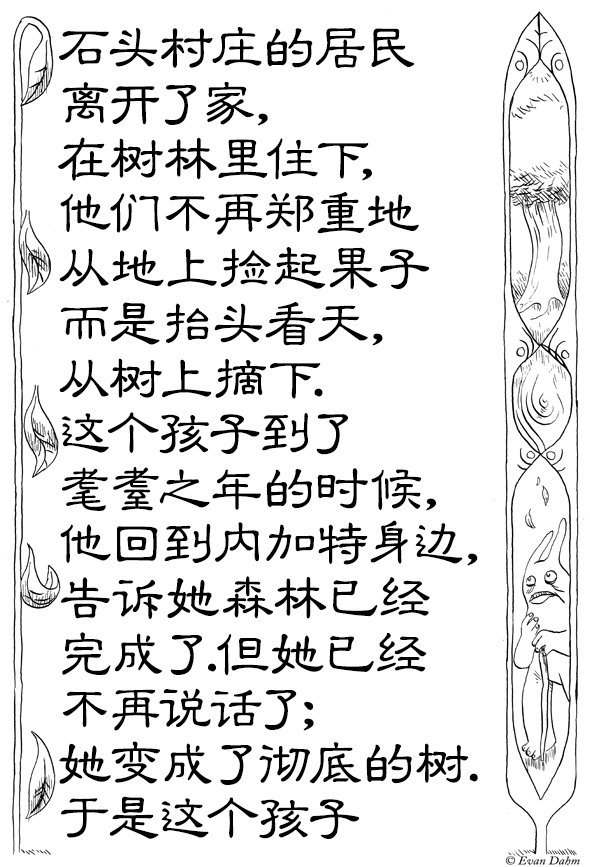 石头村庄的居民
离开了家,
在树林里住下,
他们不再郑重地
从地上捡起果子
而是抬头看天,
从树上摘下.
这个孩子到了
耄耋之年的时候,
他回到内加特身边,
告诉她森林已经
完成了.但她已经
不再说话了;
她变成了彻底的树.
于是这个孩子
© Evan Dahm